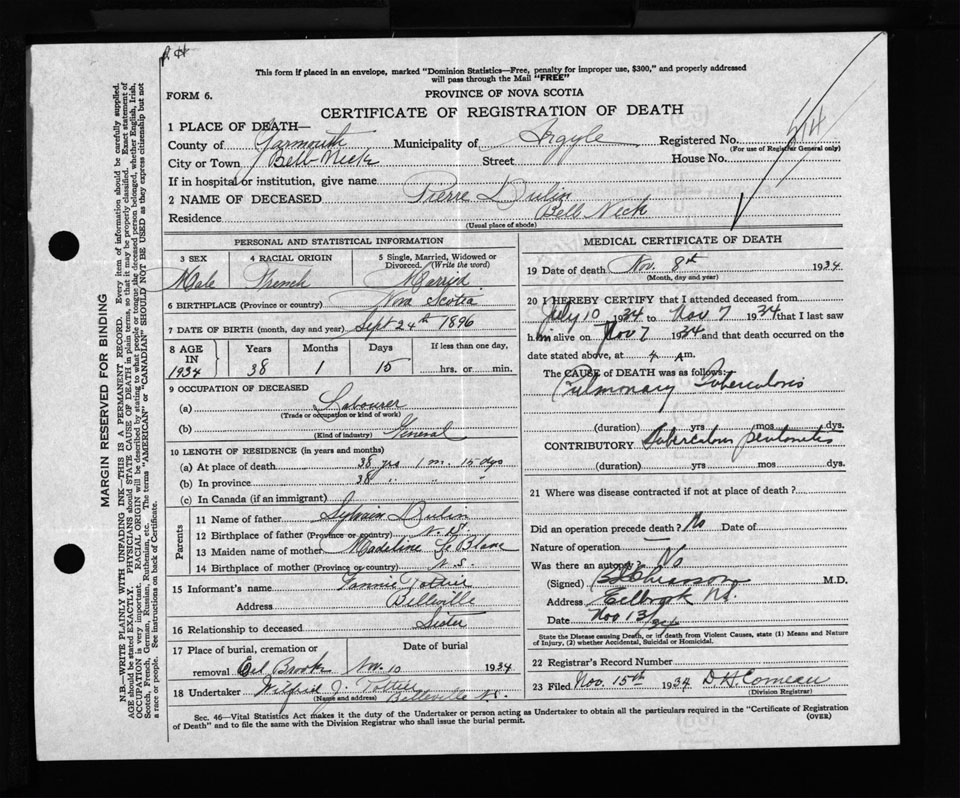 This form if placed in an envelope, marked "Dominion Statistics—Free, penalty for improper use, $300," and properly addressed
will pass through the Mail "FREE"
FORM 6.
PROVINCE OF NOVA SCOTIA
CERTIFICATE OF REGISTRATION OF DEATH
1 PLACE OF DEATH—
County of Yarmouth Municipality of Argyle Registered No.
(For use of Registrar General only)
City or Town Bell Neck Street House No.
If in hospital or institution, give name
2 NAME OF DECEASED Pierre Dulin
Residence Bell Neck
(Usual place of abode)
PERSONAL AND STATISTICAL INFORMATION
3 SEX 4 RACIAL ORIGIN 5 Single, Married, Widowed or
Divorced. (Write the word)
Male French Married
6 BIRTHPLACE (Province or country) Nova Scotia
7 DATE OF BIRTH (month, day and year) Sept 24th 1896
8 AGE IN 1934 Years Months Days If less than one day,
38 1 15 hrs. or min.
9 OCCUPATION OF DECEASED
(a) Labourer
(Trade or occupation or kind of work)
(b) General
(Kind of industry)
10 LENGTH OF RESIDENCE (in years and months)
(a) At place of death 38 yrs 1 m. 15 dys
(b) In province 38 " " "
(c) In Canada (if an immigrant)
Parents
11 Name of father Sylvain Dulin
12 Birthplace of father (Province or country) N.S.
13 Maiden name of mother Madeline Le Blanc
14 Birthplace of mother (Province or country) N.S.
15 Informant's name Fannie Pottie
Address Belleville
16 Relationship to deceased Sister
17 Place of burial, cremation or Date of burial
removal Eel Brook Nov. 10 1934
18 Undertaker Wilfred J. Pottie Belleville N.S.
(Name and address)
MEDICAL CERTIFICATE OF DEATH
19 Date of death Nov 8th 1934
(Month, day and year)
20 I HEREBY CERTIFY that I attended deceased from
July 10 1934 to Nov 7 1934 that I last saw
him alive on Nov 7 1934 and that death occurred on the
date stated above, at 4 A m.
The CAUSE of DEATH was as follows:
Pulmonary Tuberculosis
(duration) yrs mos dys.
CONTRIBUTORY Tuberculous peritonitis
(duration) yrs mos dys.
21 Where was disease contracted if not at place of death?
Did an operation precede death? No Date of
Nature of operation —
Was there an autopsy? No
(Signed) Chiasson M.D.
Address Eelbrook NS.
Date Nov 13/34
State the Disease causing Death, or in death from Violent Causes, state (1) Means and Nature
of Injury, (2) whether Accidental, Suicidal or Homicidal.
22 Registrar's Record Number
23 Filed Nov. 15th 1934 D H Comeau
(Division Registrar)
Sec. 46—Vital Statistics Act makes it the duty of the Undertaker or person acting as Undertaker to obtain all the particulars required in the "Certificate of Registration
of Death" and to file the same with the Division Registrar who shall issue the burial permit. (OVER)
MARGIN RESERVED FOR BINDING
N.B.—WRITE PLAINLY WITH UNFADING INK—THIS IS A PERMANENT RECORD. Every item of information should be carefully supplied.
AGE should be stated EXACTLY. PHYSICIANS should STATE CAUSE OF DEATH in plain terms, so that it may be properly classified. Exact statement of
OCCUPATION is very important. RACIAL ORIGIN will be described by stating to what people or tongue the deceased person belonged, whether English, Irish,
Scotch, French, German, Russian, Ruthenian, etc. The terms "AMERICAN" or "CANADIAN" SHOULD NOT BE USED as they express citizenship but not
a race or people. See instructions on back of Certificate.